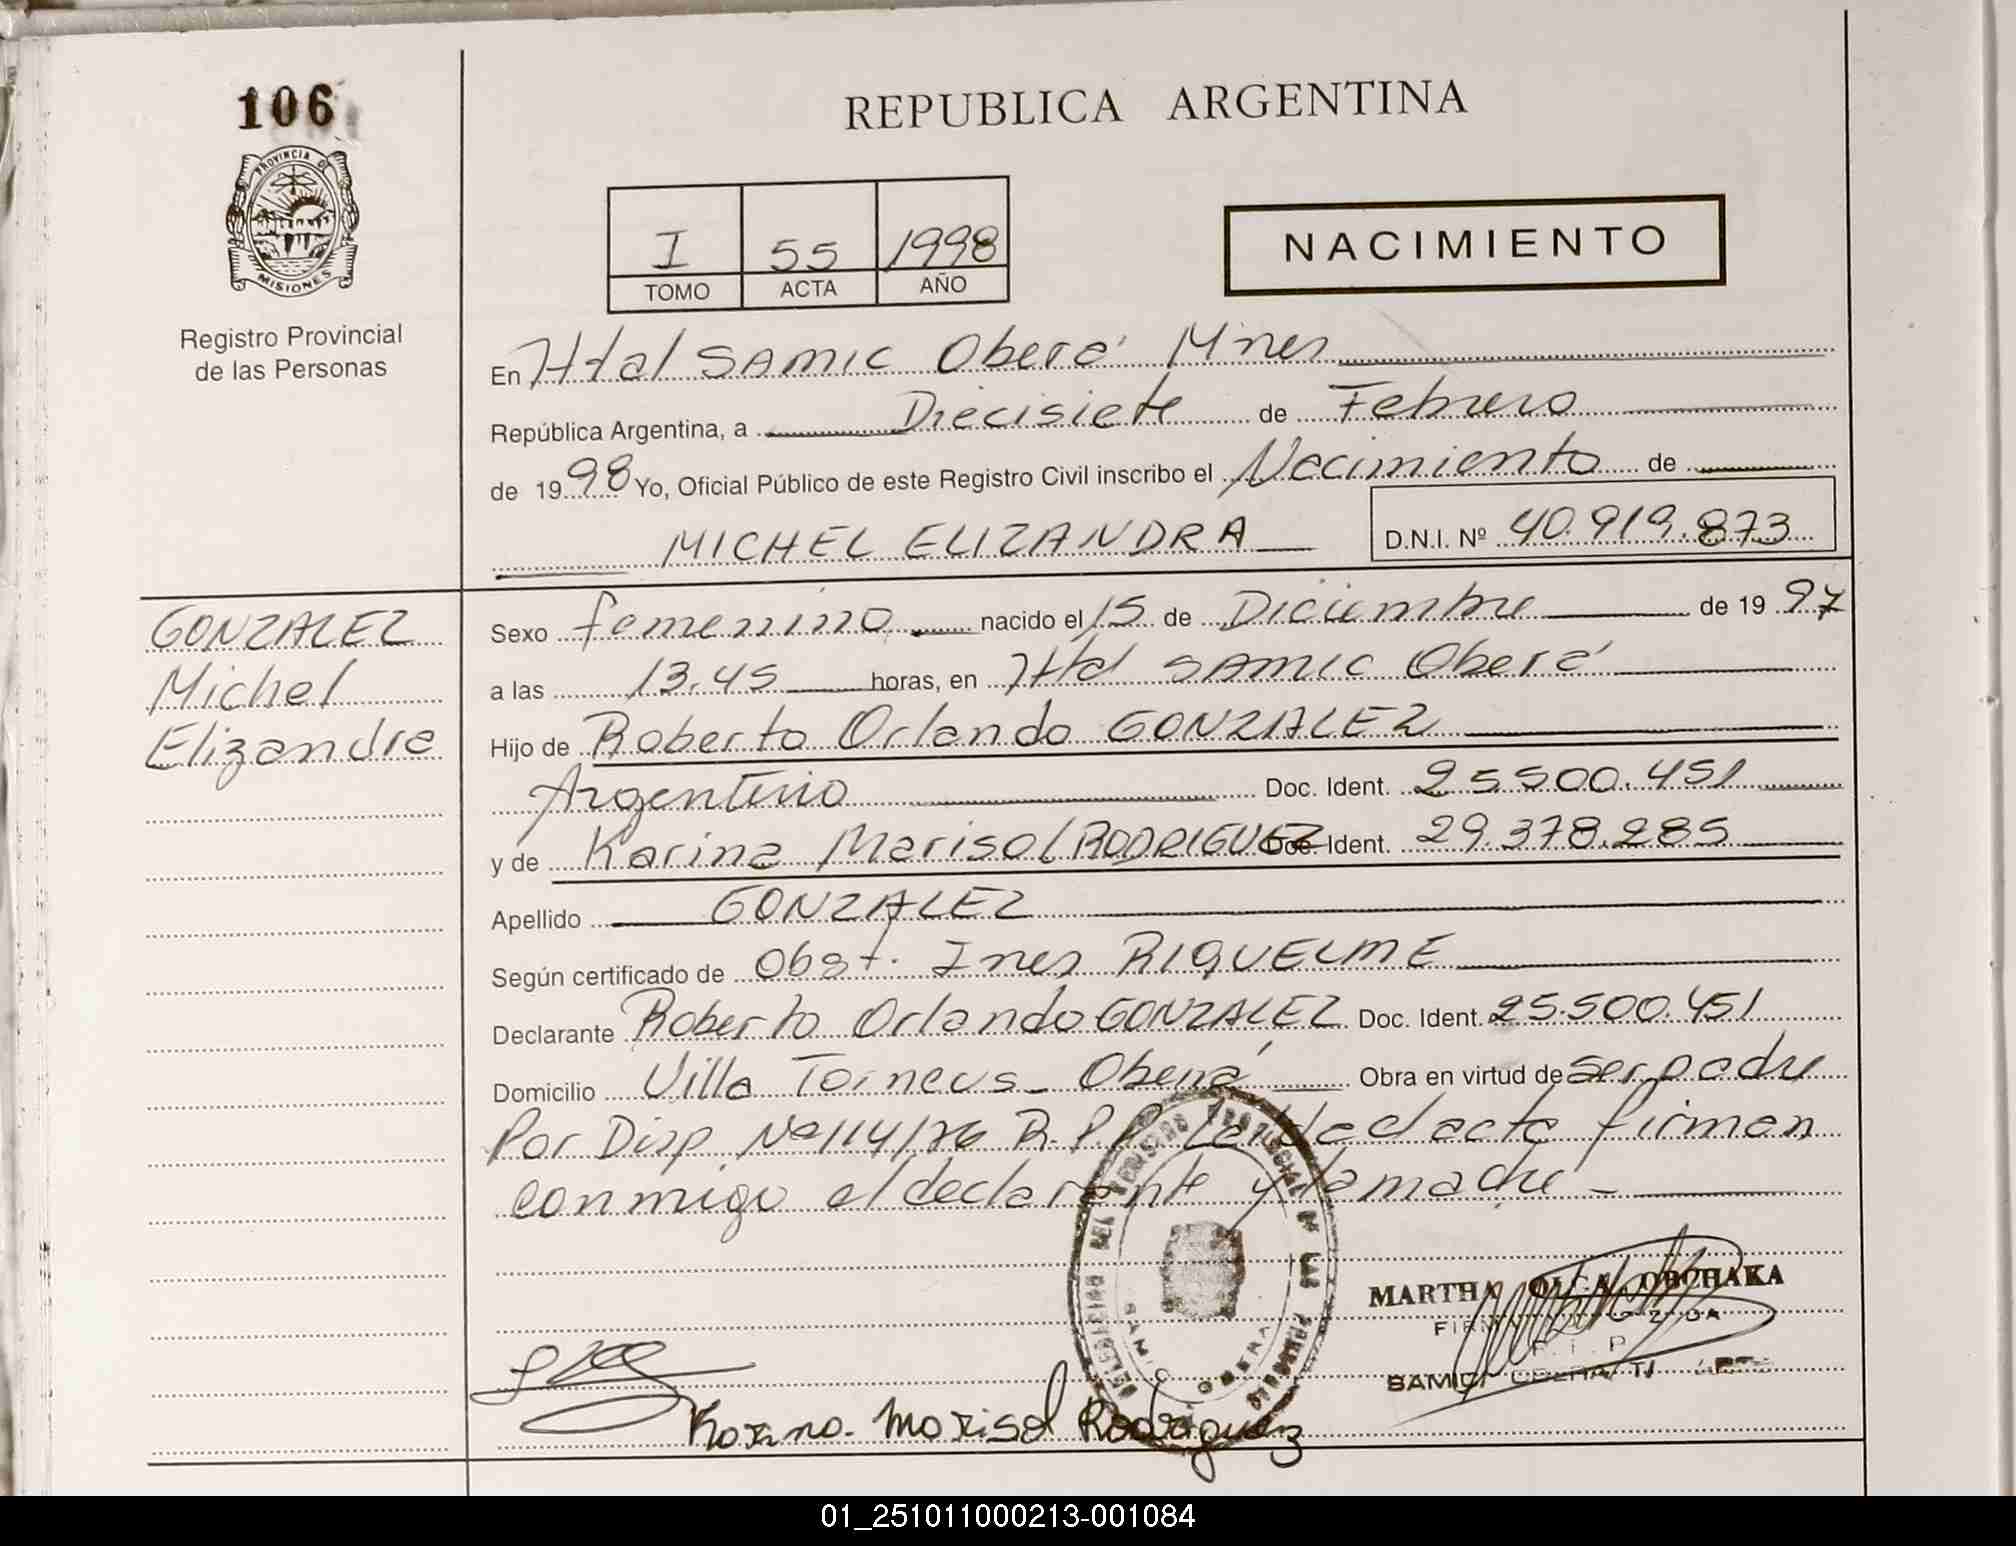 106
PROVINCIA DE
MISIONES
Registro Provincial
de las Personas
REPUBLICA ARGENTINA
I 55 1998
TOMO ACTA AÑO
NACIMIENTO
En Htal SAMIC Oberá Mnes
República Argentina, a Diecisiete de Febrero
de 1998 Yo, Oficial Público de este Registro Civil inscribo el Nacimiento de
MICHEL ELIZANDRA D.N.I. Nº 40.919.873
GONZALEZ
Michel
Elizandra
Sexo femenino nacido el 15 de Diciembre de 1997
a las 13.45 horas, en Htal SAMIC Oberá
Hijo de Roberto Orlando GONZALEZ
Argentino Doc. Ident. 25.500.451
y de Karina Marisol RODRIGUEZ Doc. Ident. 29.378.285
Apellido GONZALEZ
Según certificado de Obst. Ines RIQUELME
Declarante Roberto Orlando GONZALEZ Doc. Ident. 25.500.451
Domicilio Villa Torneus - Oberá Obra en virtud de ser padre
Por Disp Nº 114/76 R.P.P. Leída el acta firman
conmigo el declarante y la madre -
DELEGACION DEL REGISTRO PROVINCIAL DE LAS PERSONAS
SAMIC OBERA
MARTHA OLGA OBCHAKA
SAMIC
Karina Marisol Rodriguez
01_251011000213-001084